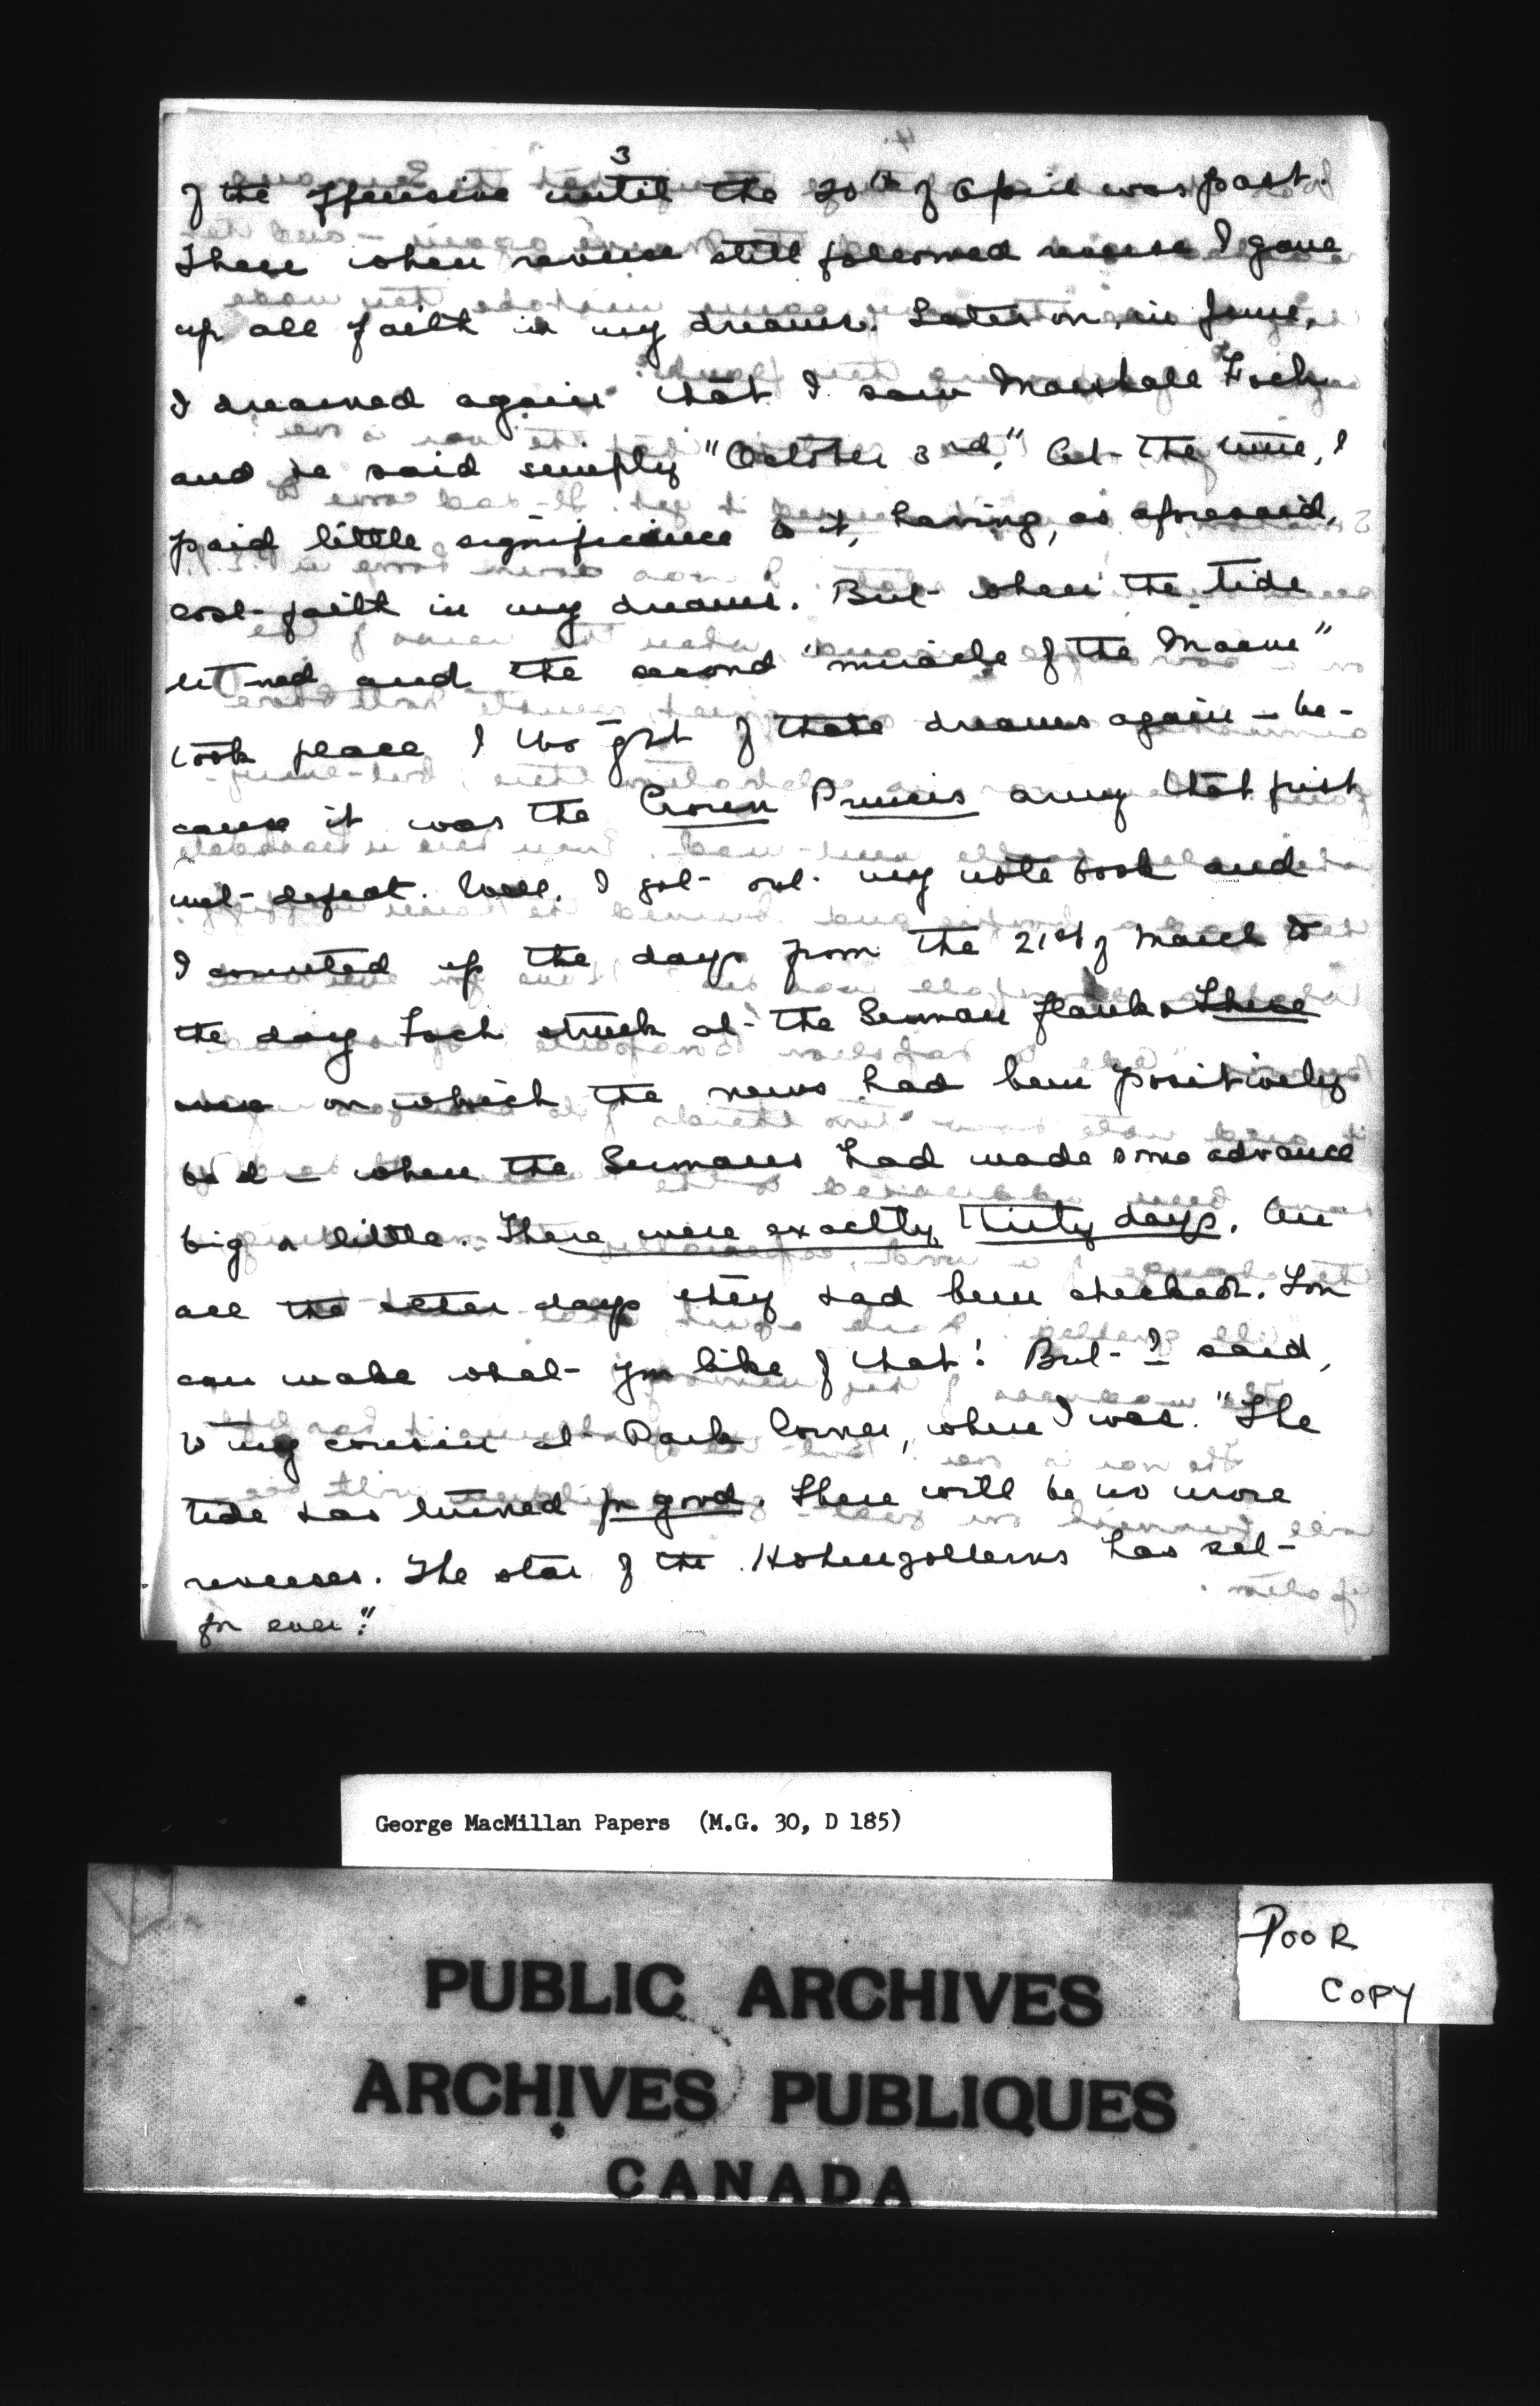 3
of the offensive until the 20th of April was past.
Then when reverse still followed reverse I gave
up all faith in my dreams. Later on, in June,
I dreamed again that I saw Marshall Foch
and he said simply "October 3rd." At the time, I
paid little significance to it, having, as aforesaid,
lost faith in my dreams. But when the tide
turned and the second "miracle of the Marne"
took place I thought of those dreams again - be-
cause it was the Crown Princes army that first
met defeat. Well, I got out my note book and
I counted up the days from the 21st of March to
the day Foch struck at the German flank. There
were on which the news had been positively
bad - when the Germans had made some advance
big or little. There were exactly thirty days. On
all the other days they had been checked. You
can make what you like of that! But I said,
to my cousin at Park Corner, where I was. "The
tide has turned for good. There will be no more
reverses. The star of the Hohenzollerns has set
for ever."
George MacMillan Papers (M.G. 30, D 185)
POOR
COPY
PUBLIC ARCHIVES
ARCHIVES PUBLIQUES
CANADA